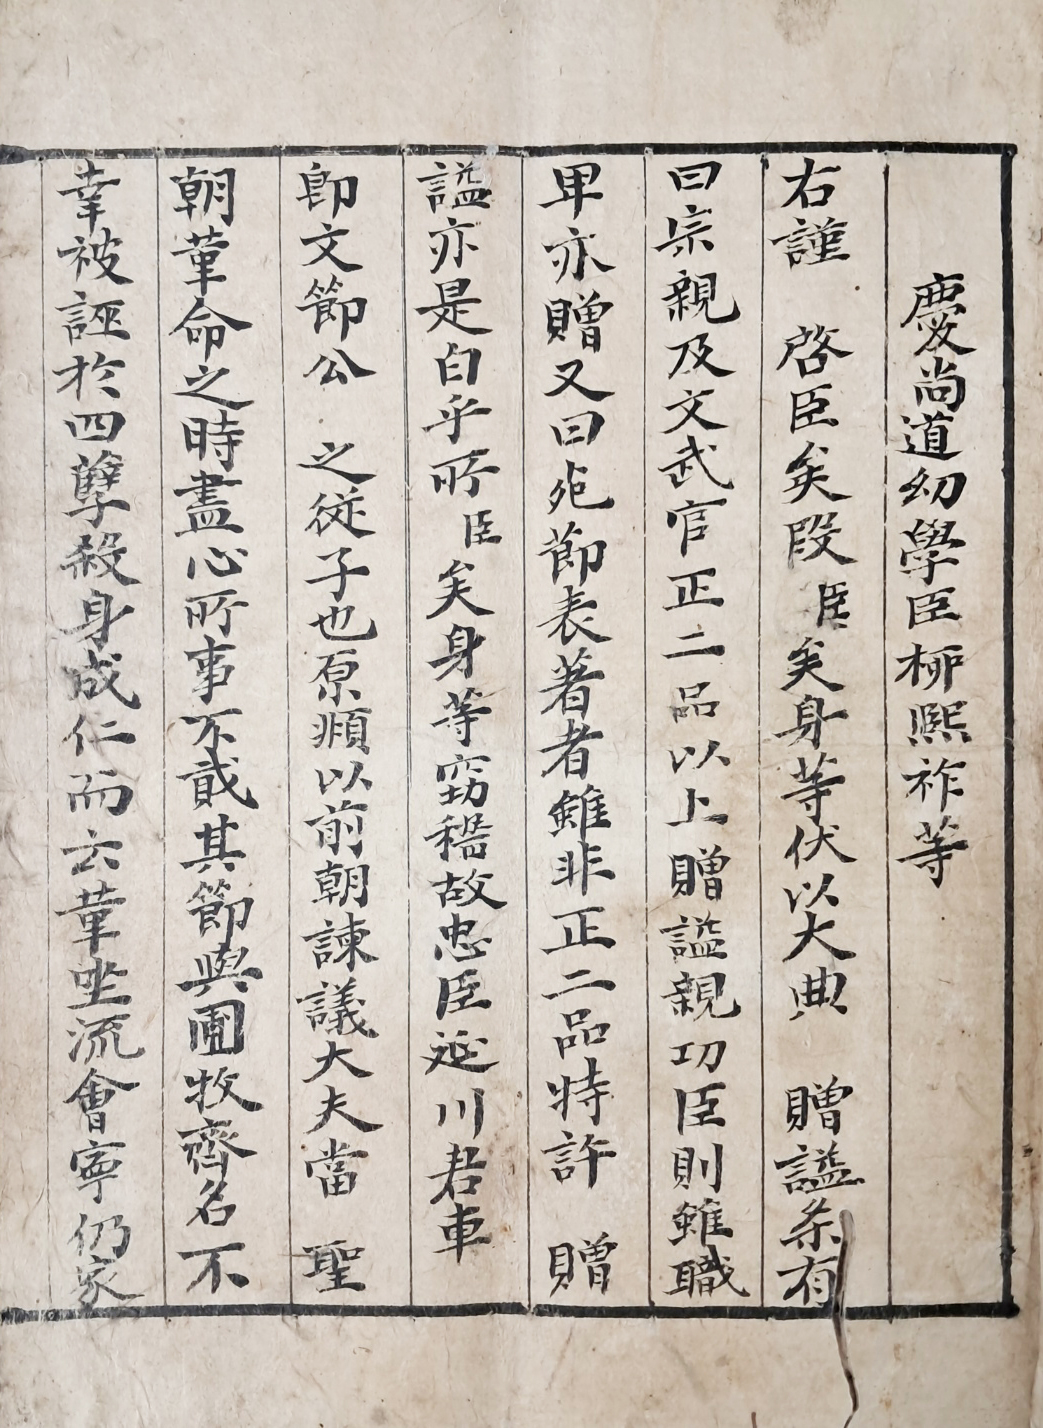 慶尚道幼學臣柳熙祚等
右謹 啓臣矣段臣矣身等伏以大典 贈謚条有
曰宗親及文武官正二品以上贈謚親功臣則雖職
卑亦贈又曰死節表著者雖非正二品特許 贈
謚亦是白乎所臣矣身等竊稽故忠臣延川君車
卽文節公 之從子也原頫以前朝諫議大夫當 聖
朝革命之時盡心所事不貳其節與圃牧齊名不
幸被誣於四孽殺身成仁而云革坐流會寧仍家